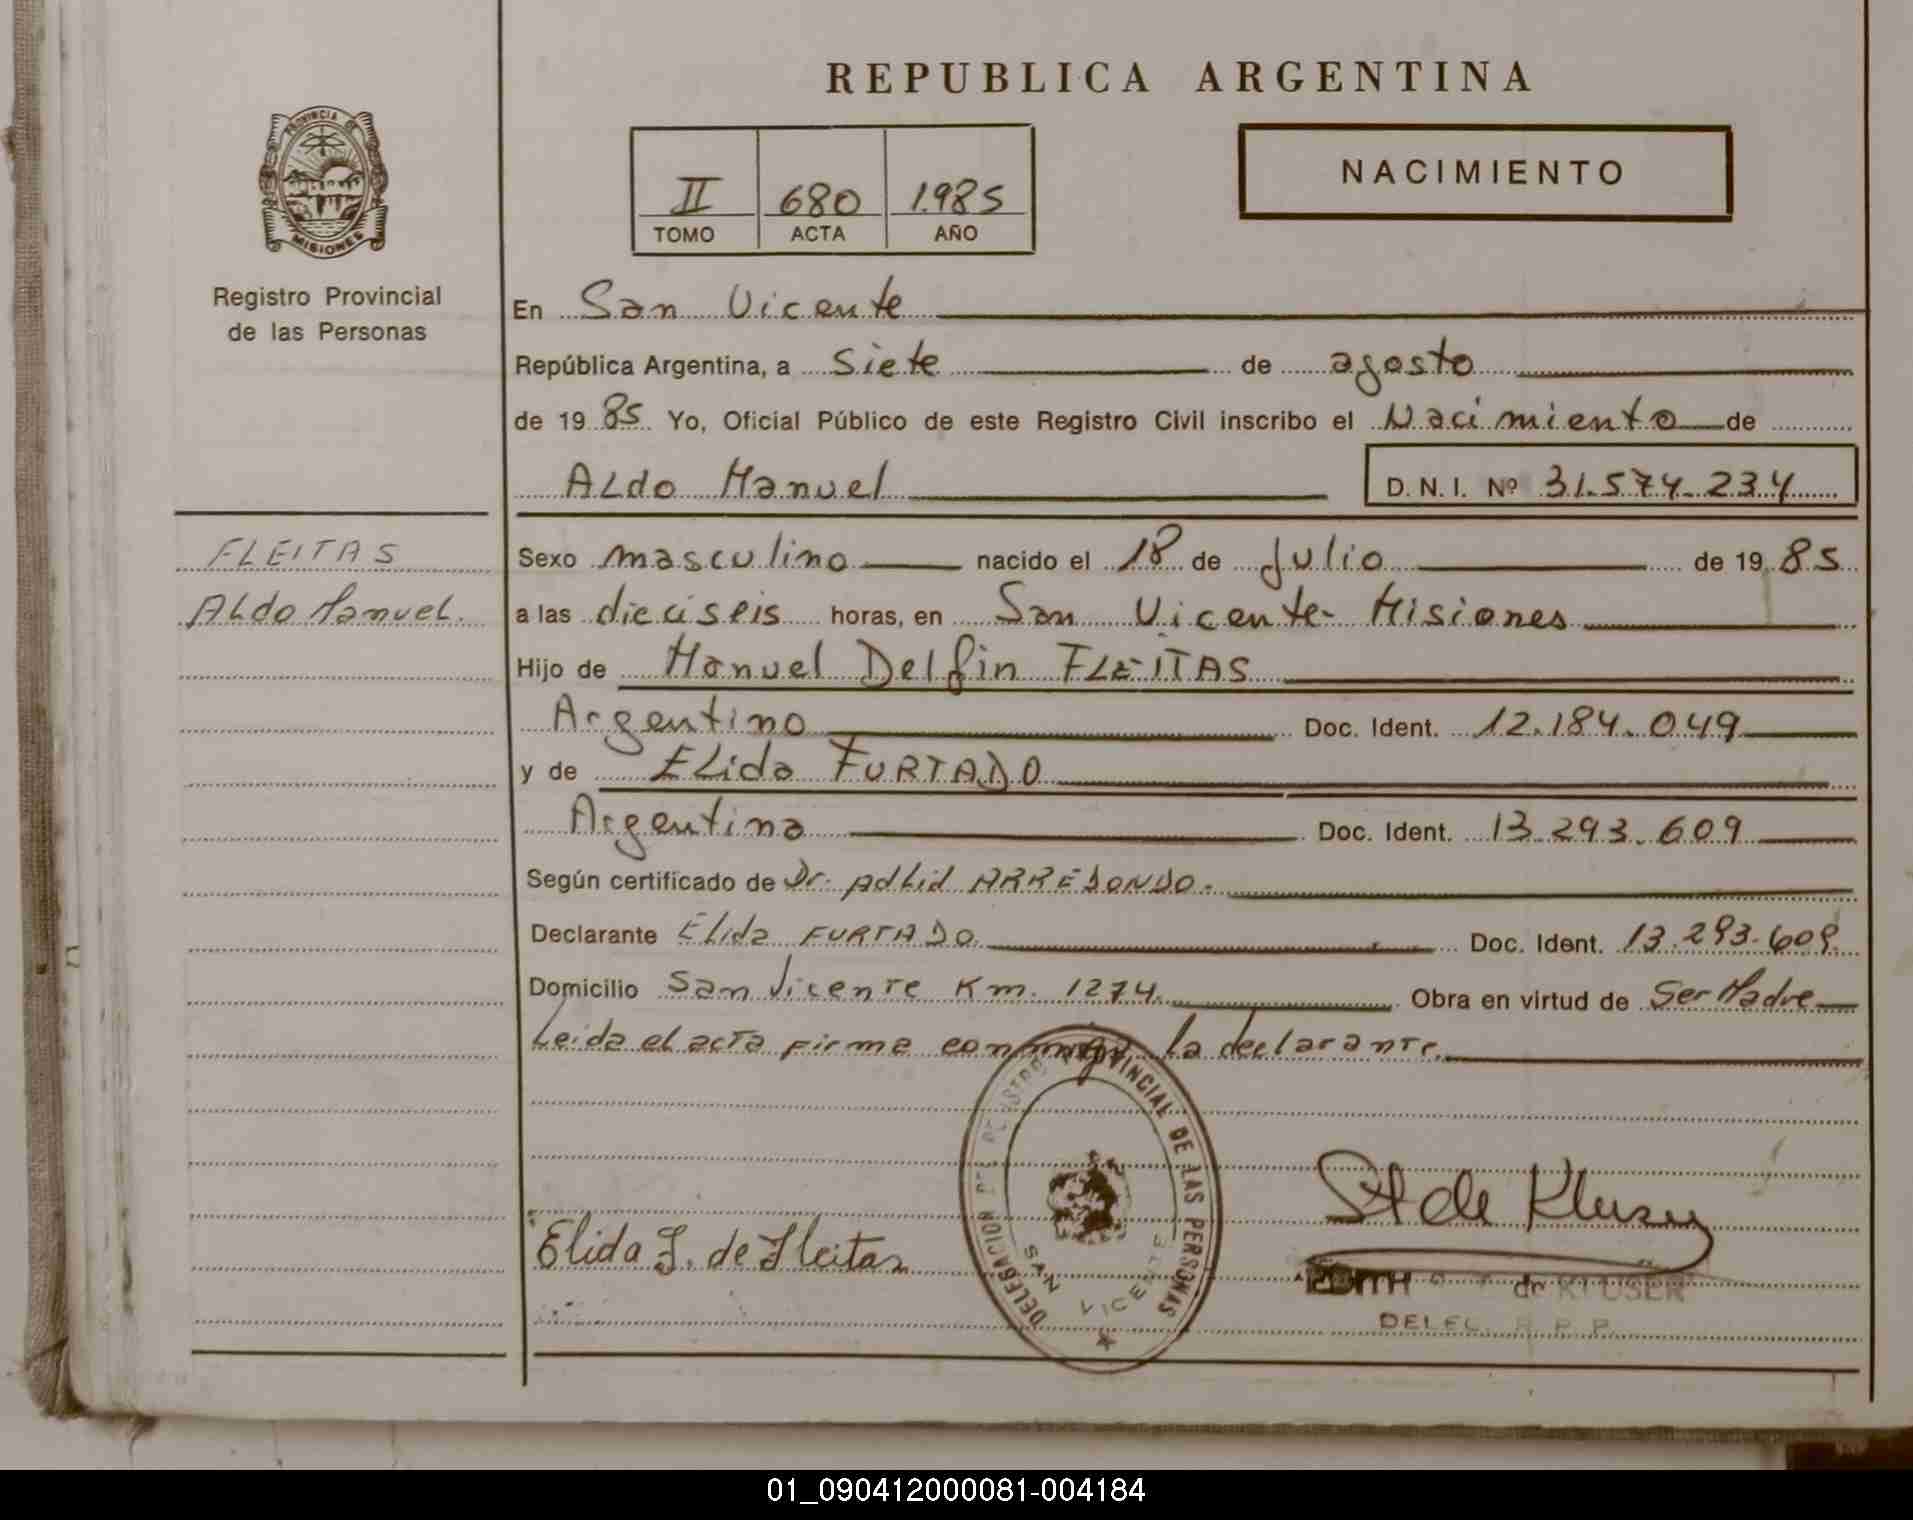 REPUBLICA ARGENTINA
PROVINCIA DE
MISIONES
Registro Provincial
de las Personas
II 680 1.985
TOMO ACTA AÑO
NACIMIENTO
En San Vicente
República Argentina, a Siete de agosto
de 19 85 Yo, Oficial Público de este Registro Civil inscribo el Nacimiento de
Aldo Manuel D.N.I. Nº 31.574.234
FLEITAS
Aldo Manuel.
Sexo masculino nacido el 18 de Julio de 19 85
a las dieciseis horas, en San Vicente- Misiones
Hijo de Manuel Delfin FLEITAS
Argentino Doc. Ident. 12.184.049
y de Elida FURTADO
Argentina Doc. Ident. 13.293.609
Según certificado de Dr. ARREDONDO.
Declarante Elida FURTADO Doc. Ident. 13.293.609.
Domicilio San Vicente Km. 1274. Obra en virtud de Ser Madre
Leida el acta firma conmigo la declarante.
DELEGACION DEL REGISTRO PROVINCIAL DE LAS PERSONAS
SAN VICENTE
Elida F. de Fleitas
de Kluser
EDITH de KLUSER
DELEG. R.P.P.
01_090412000081-004184